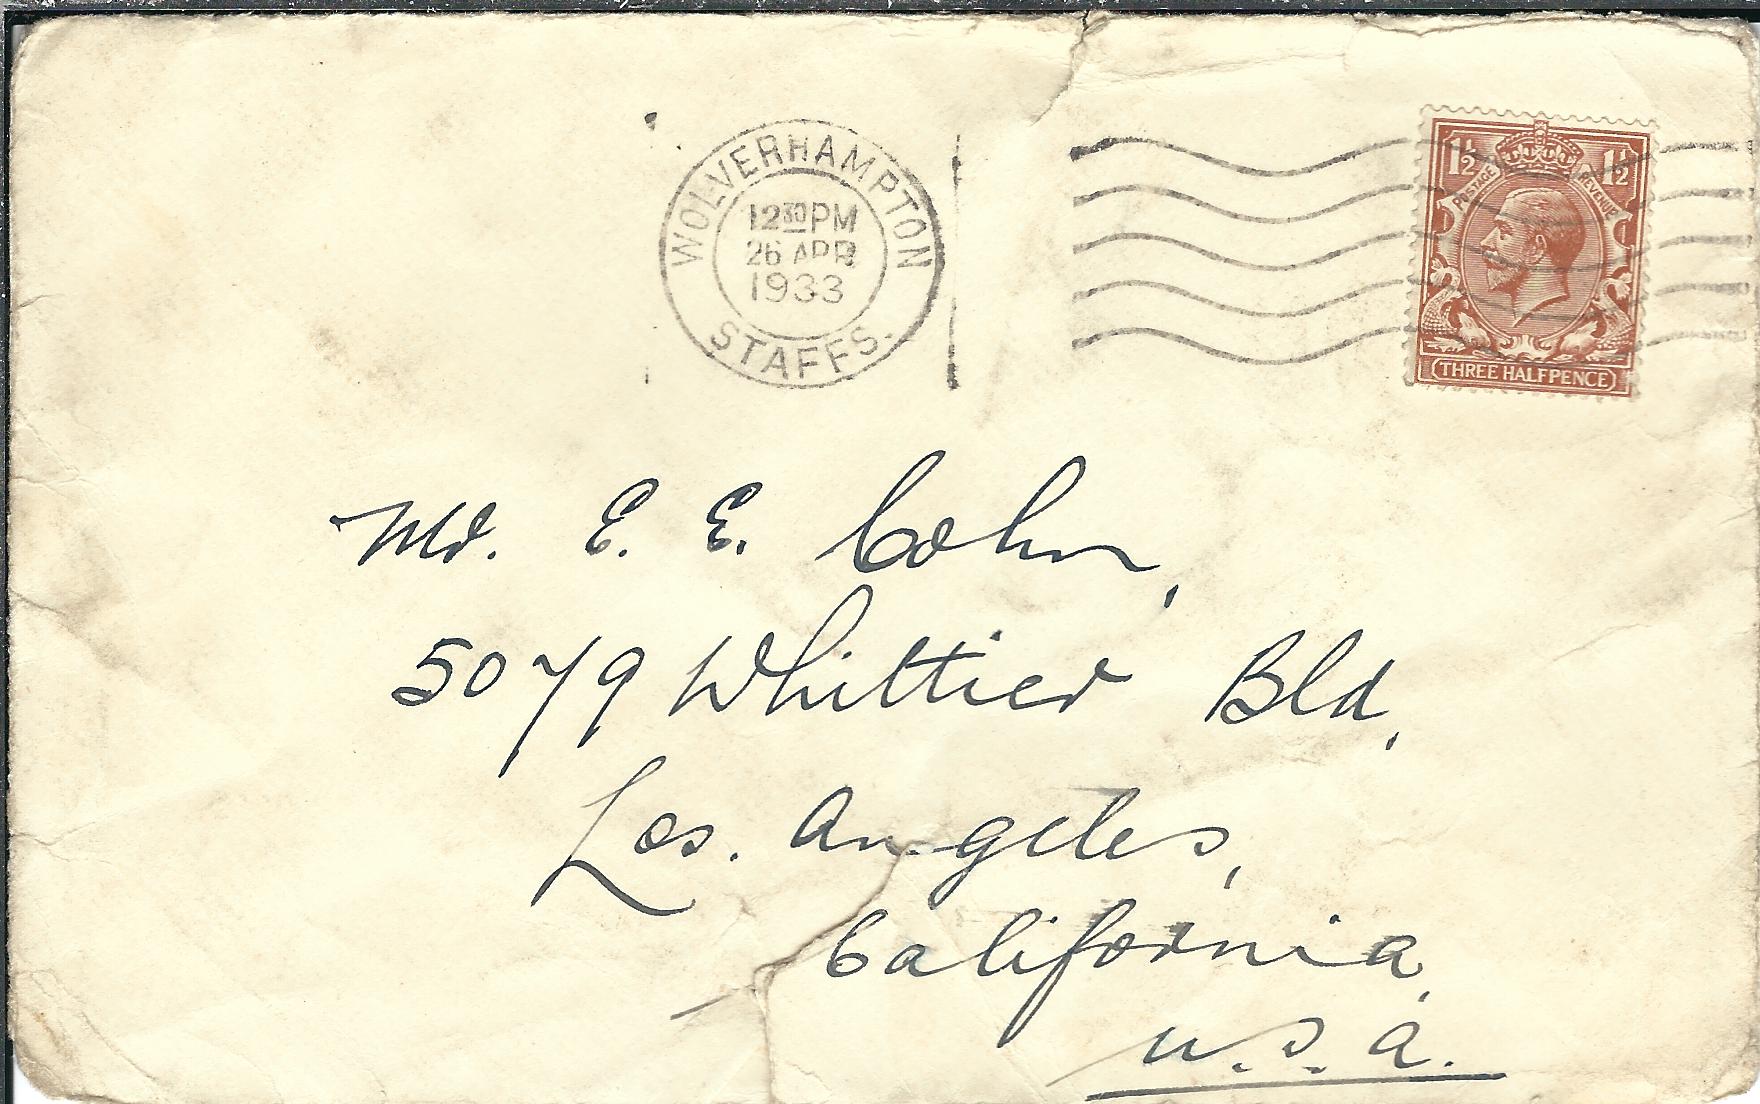 WOLVERHAMPTON
12 30 PM
26 APR
1933
STAFFS.
1½ 1½
POSTAGE REVENUE
THREE HALFPENCE
Mr. E. E. Cohn,
5079 Whittier Bld,
Los. Angeles,
California,
U.S.A.